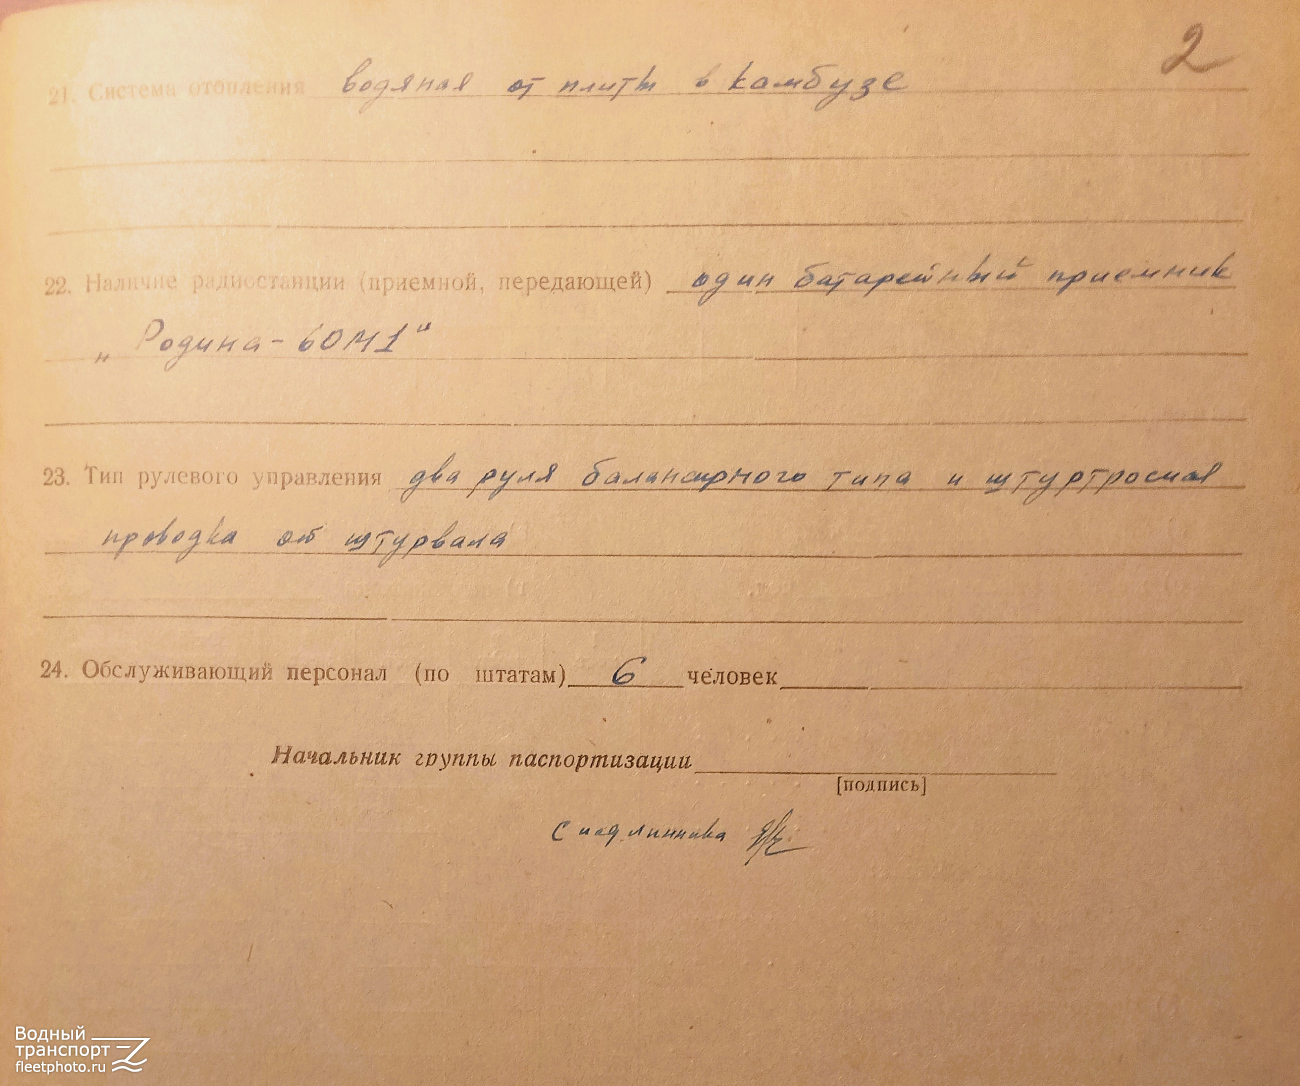 2
21. Система отопления водяная от плиты в камбузе
22. Наличие радиостанции (приемной, передающей) один батарейный приемник
„Родина-60М1"
23. Тип рулевого управления два руля балансирного типа и штуртросная
проводка от штурвала
24. Обслуживающий персонал (по штатам) 6 человек
Начальник группы паспортизации
[подпись]
С подлинника
Водный
транспорт
fleetphoto.ru